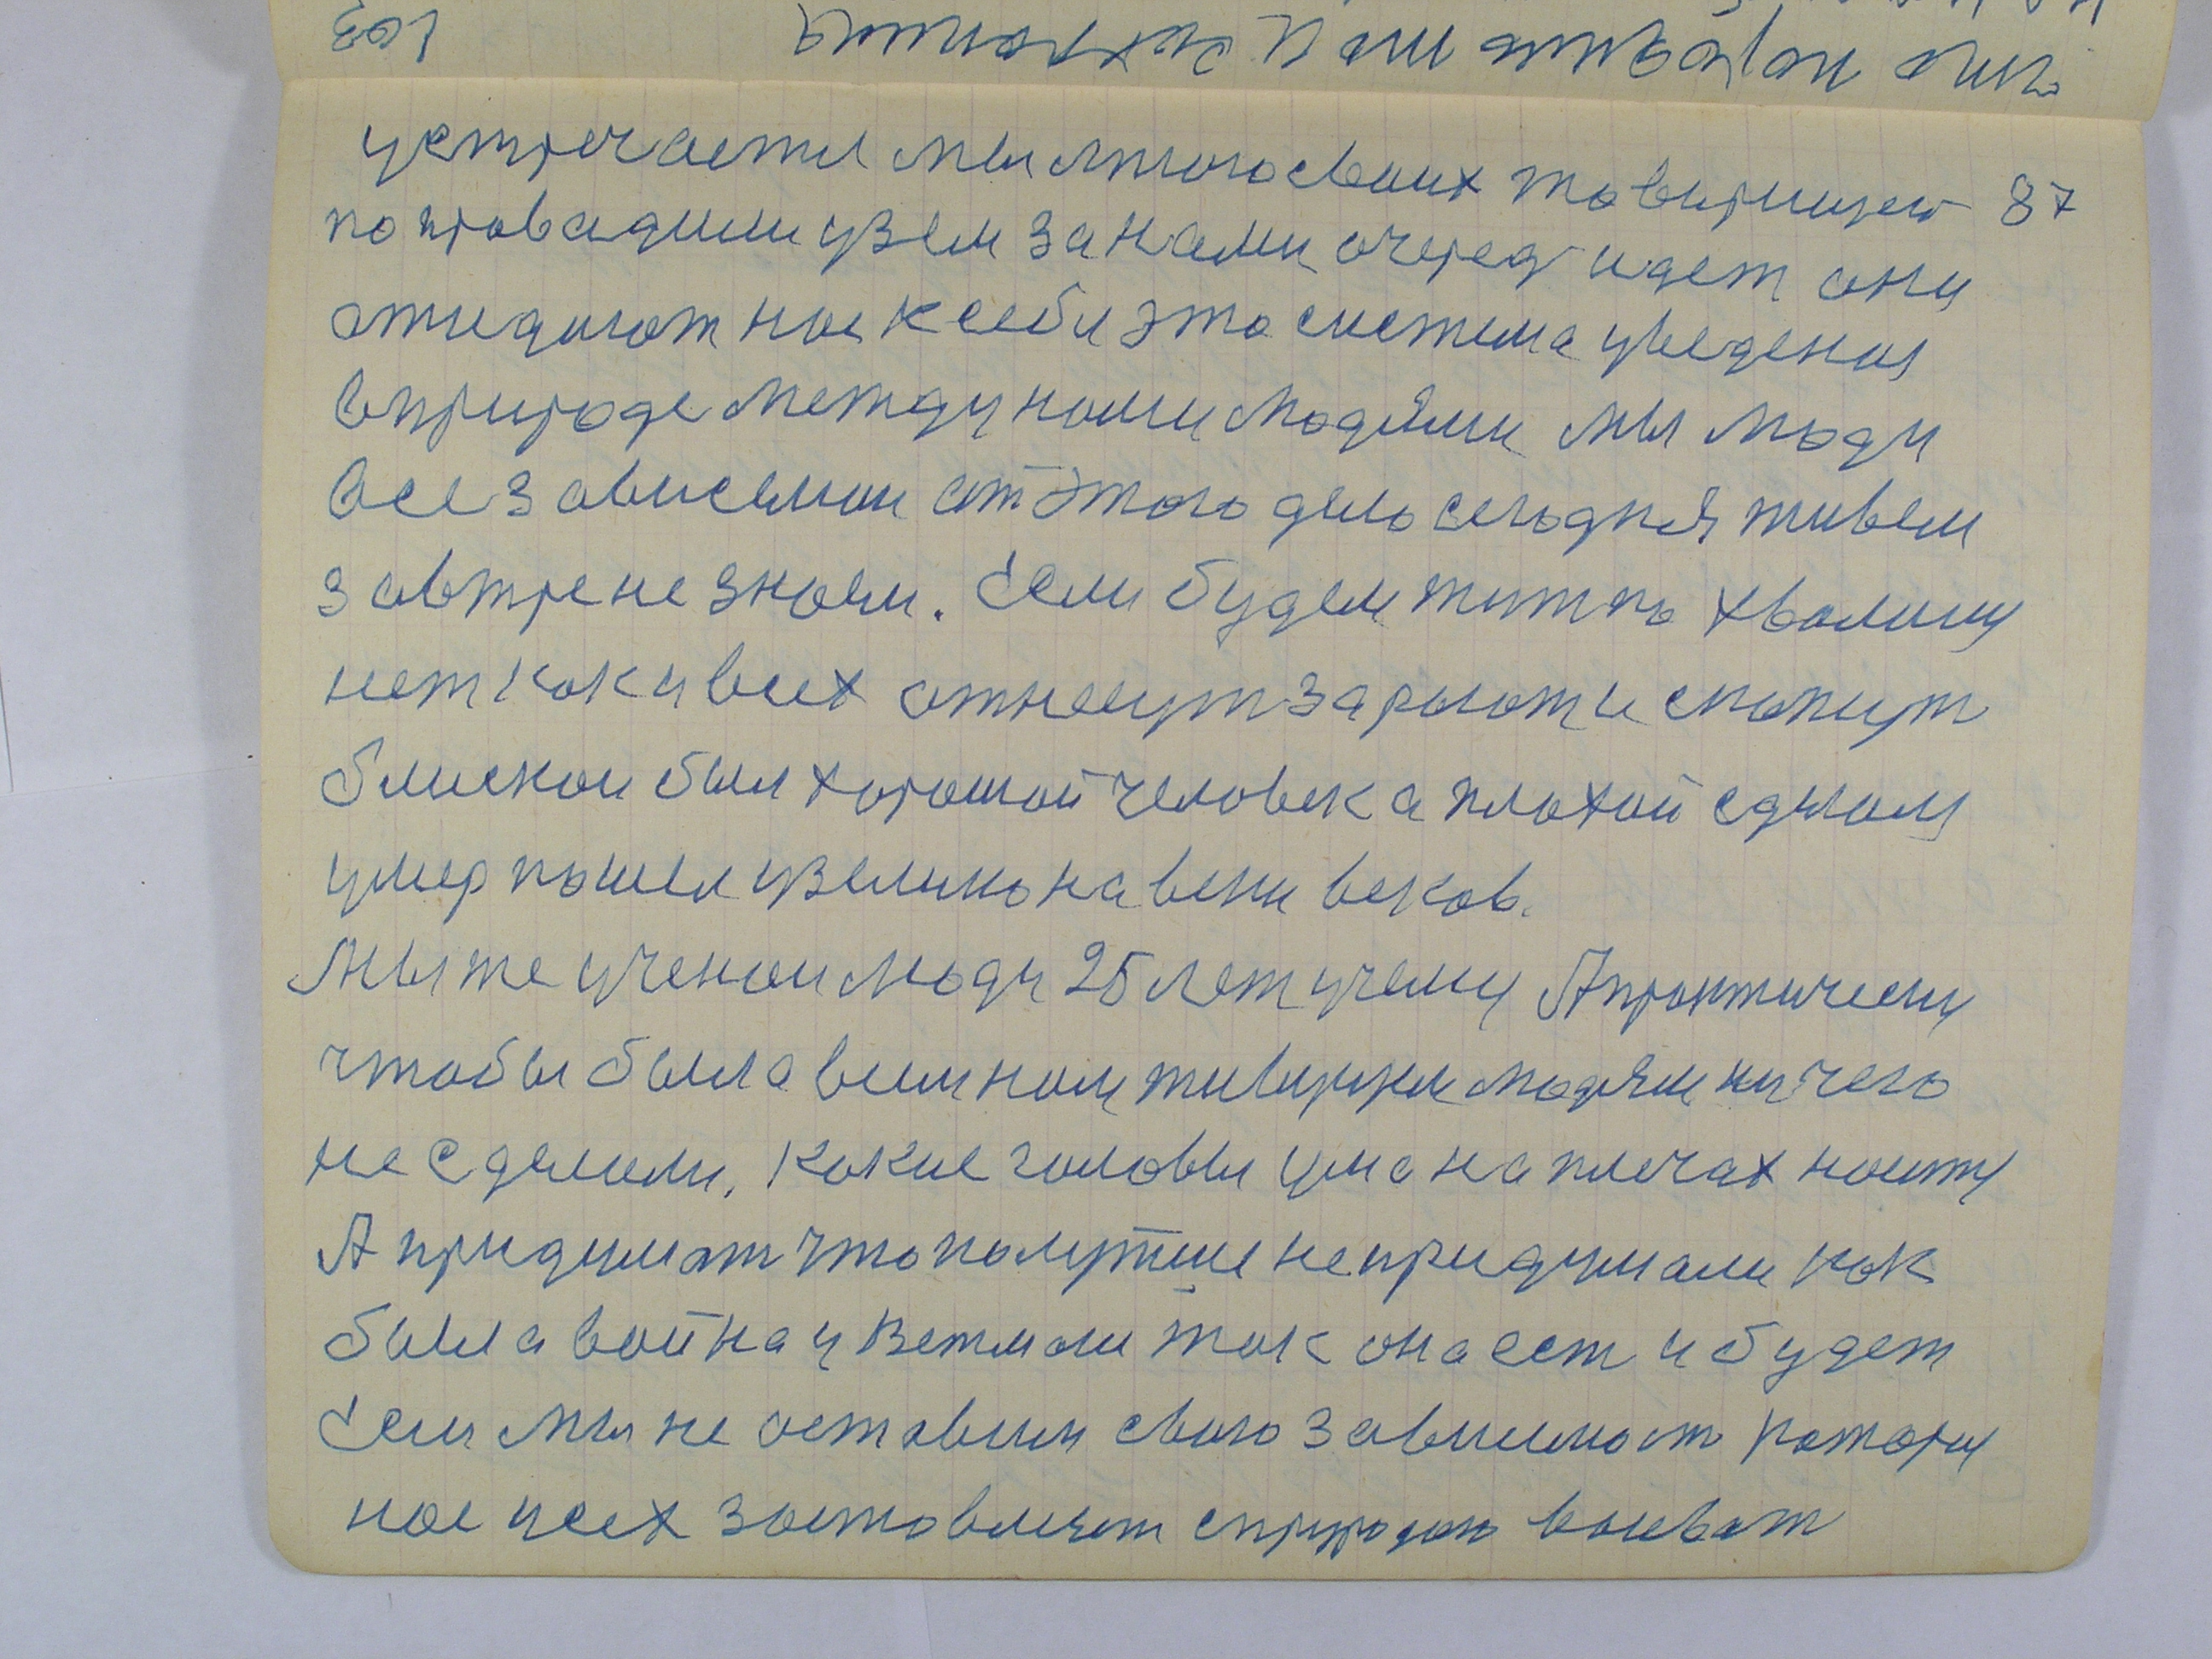 устречаетя мы много своих товырищей 87
попровадили узем за нами очеред идет они
ожидают нас к себя это система уведения
в природе между нами людями мы люди
все зависемаи от этого дело сегодня живем
завтре не знаем. Если будем жит по хвалиму
нет как и всех отнесут зарыют и скопыт
близкои был хорошой человек а плохой сделом
умер пошел уземлю на веки веков.
Мы же ученои люди 25 лет учему А практически
чтобы была вечном живыми людям ничего
не сделали. какие головы ума на плечах носит
А придумат что полутше не придумали как
была война у Ветнами так она ест и будет
Если мы не оставим свою зависимост которы
нас усех заставляет с природою воеват